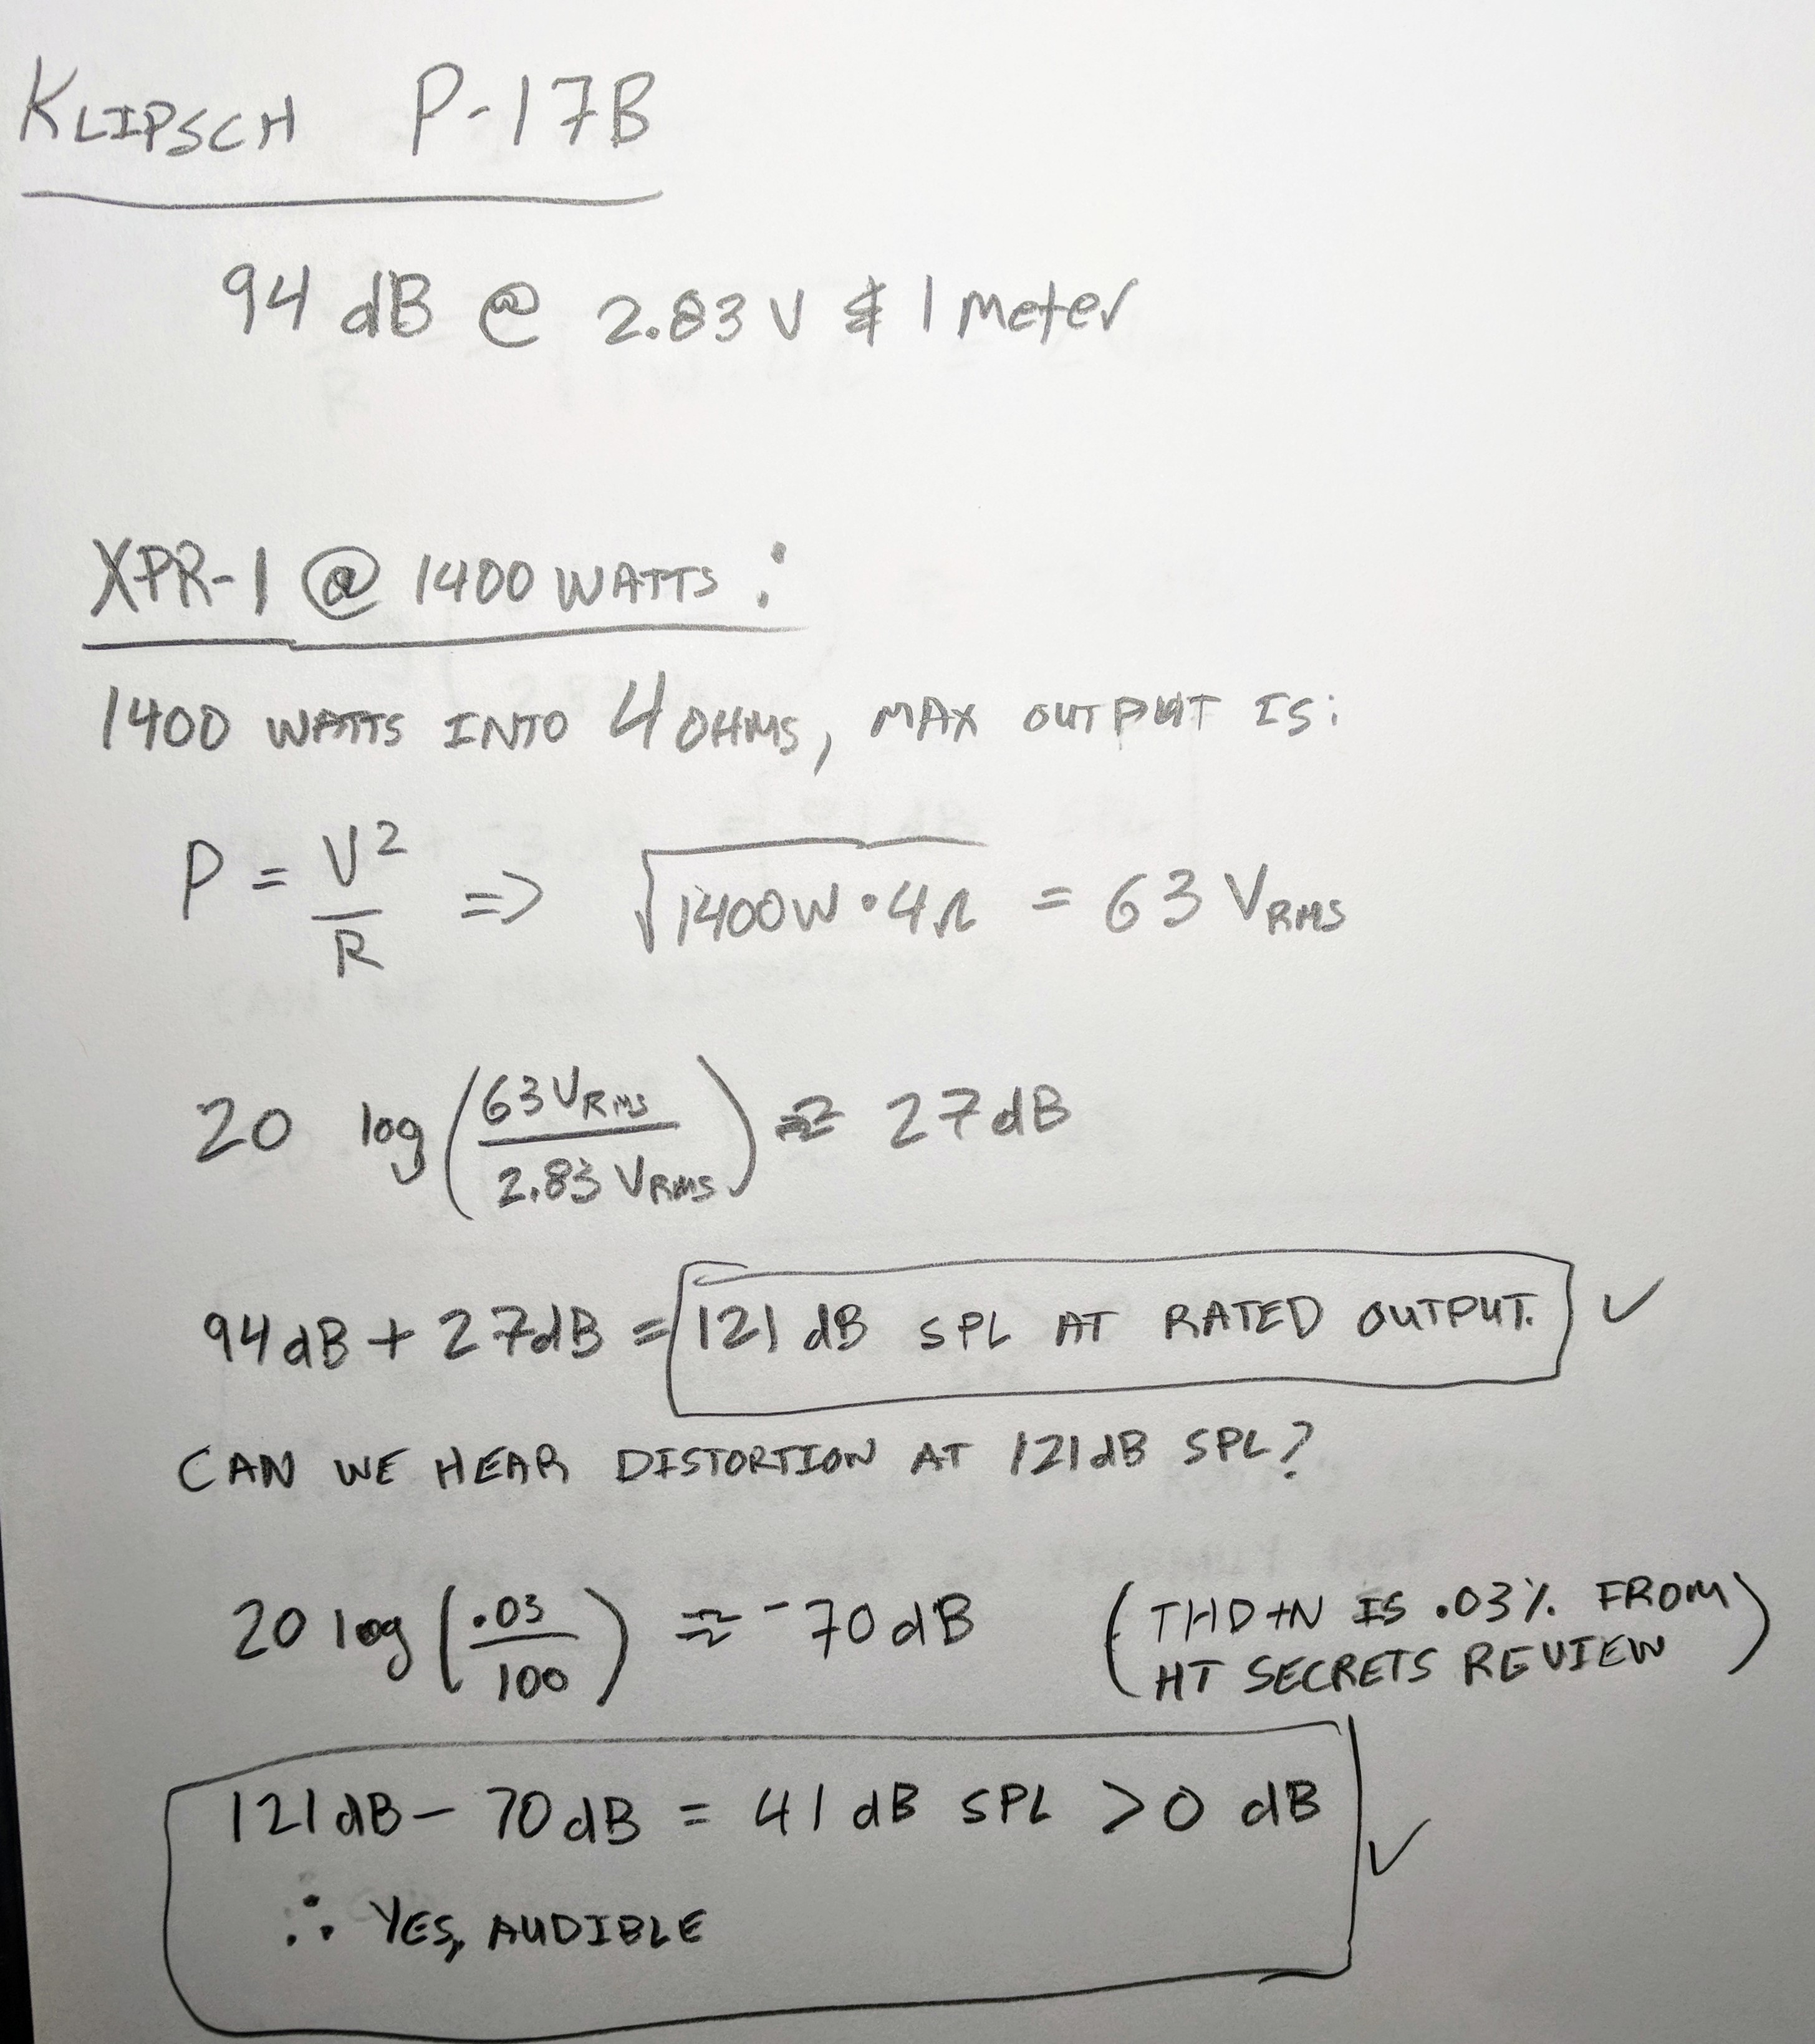 KLIPSCH P-17B
94 dB @ 2.83 V & 1 Meter
XPR-1 @ 1400 WATTS:
1400 WATTS INTO 4 OHMS, MAX OUTPUT IS:
P = V²/R => √(1400W·4Ω) = 63 VRMS
20 log(63 VRMS / 2.83 VRMS) ≈ 27 dB
94 dB + 27 dB = 121 dB SPL AT RATED OUTPUT. ✓
CAN WE HEAR DISTORTION AT 121 dB SPL?
20 log(.03/100) ≈ -70 dB (THD+N IS .03% FROM
HT SECRETS REVIEW)
121 dB - 70 dB = 41 dB SPL > 0 dB ✓
∴ YES, AUDIBLE